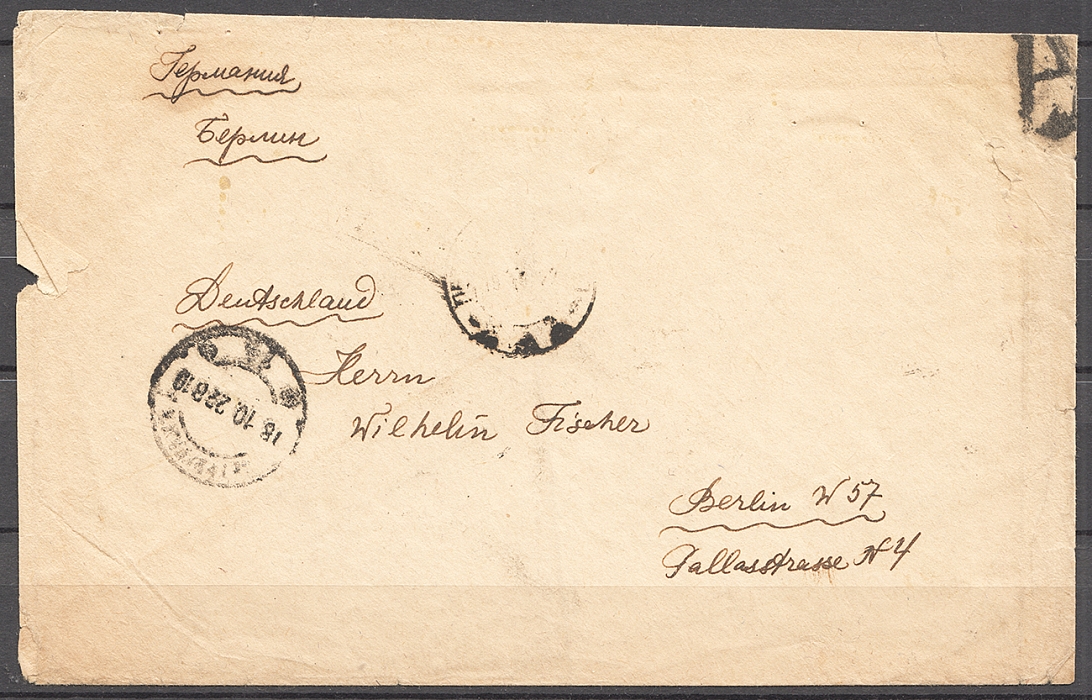 Германия
Берлин
Deutschland
Herrn
Wilhelm Fischer
Berlin W 57
Pallasstrasse N 4
18.10.22